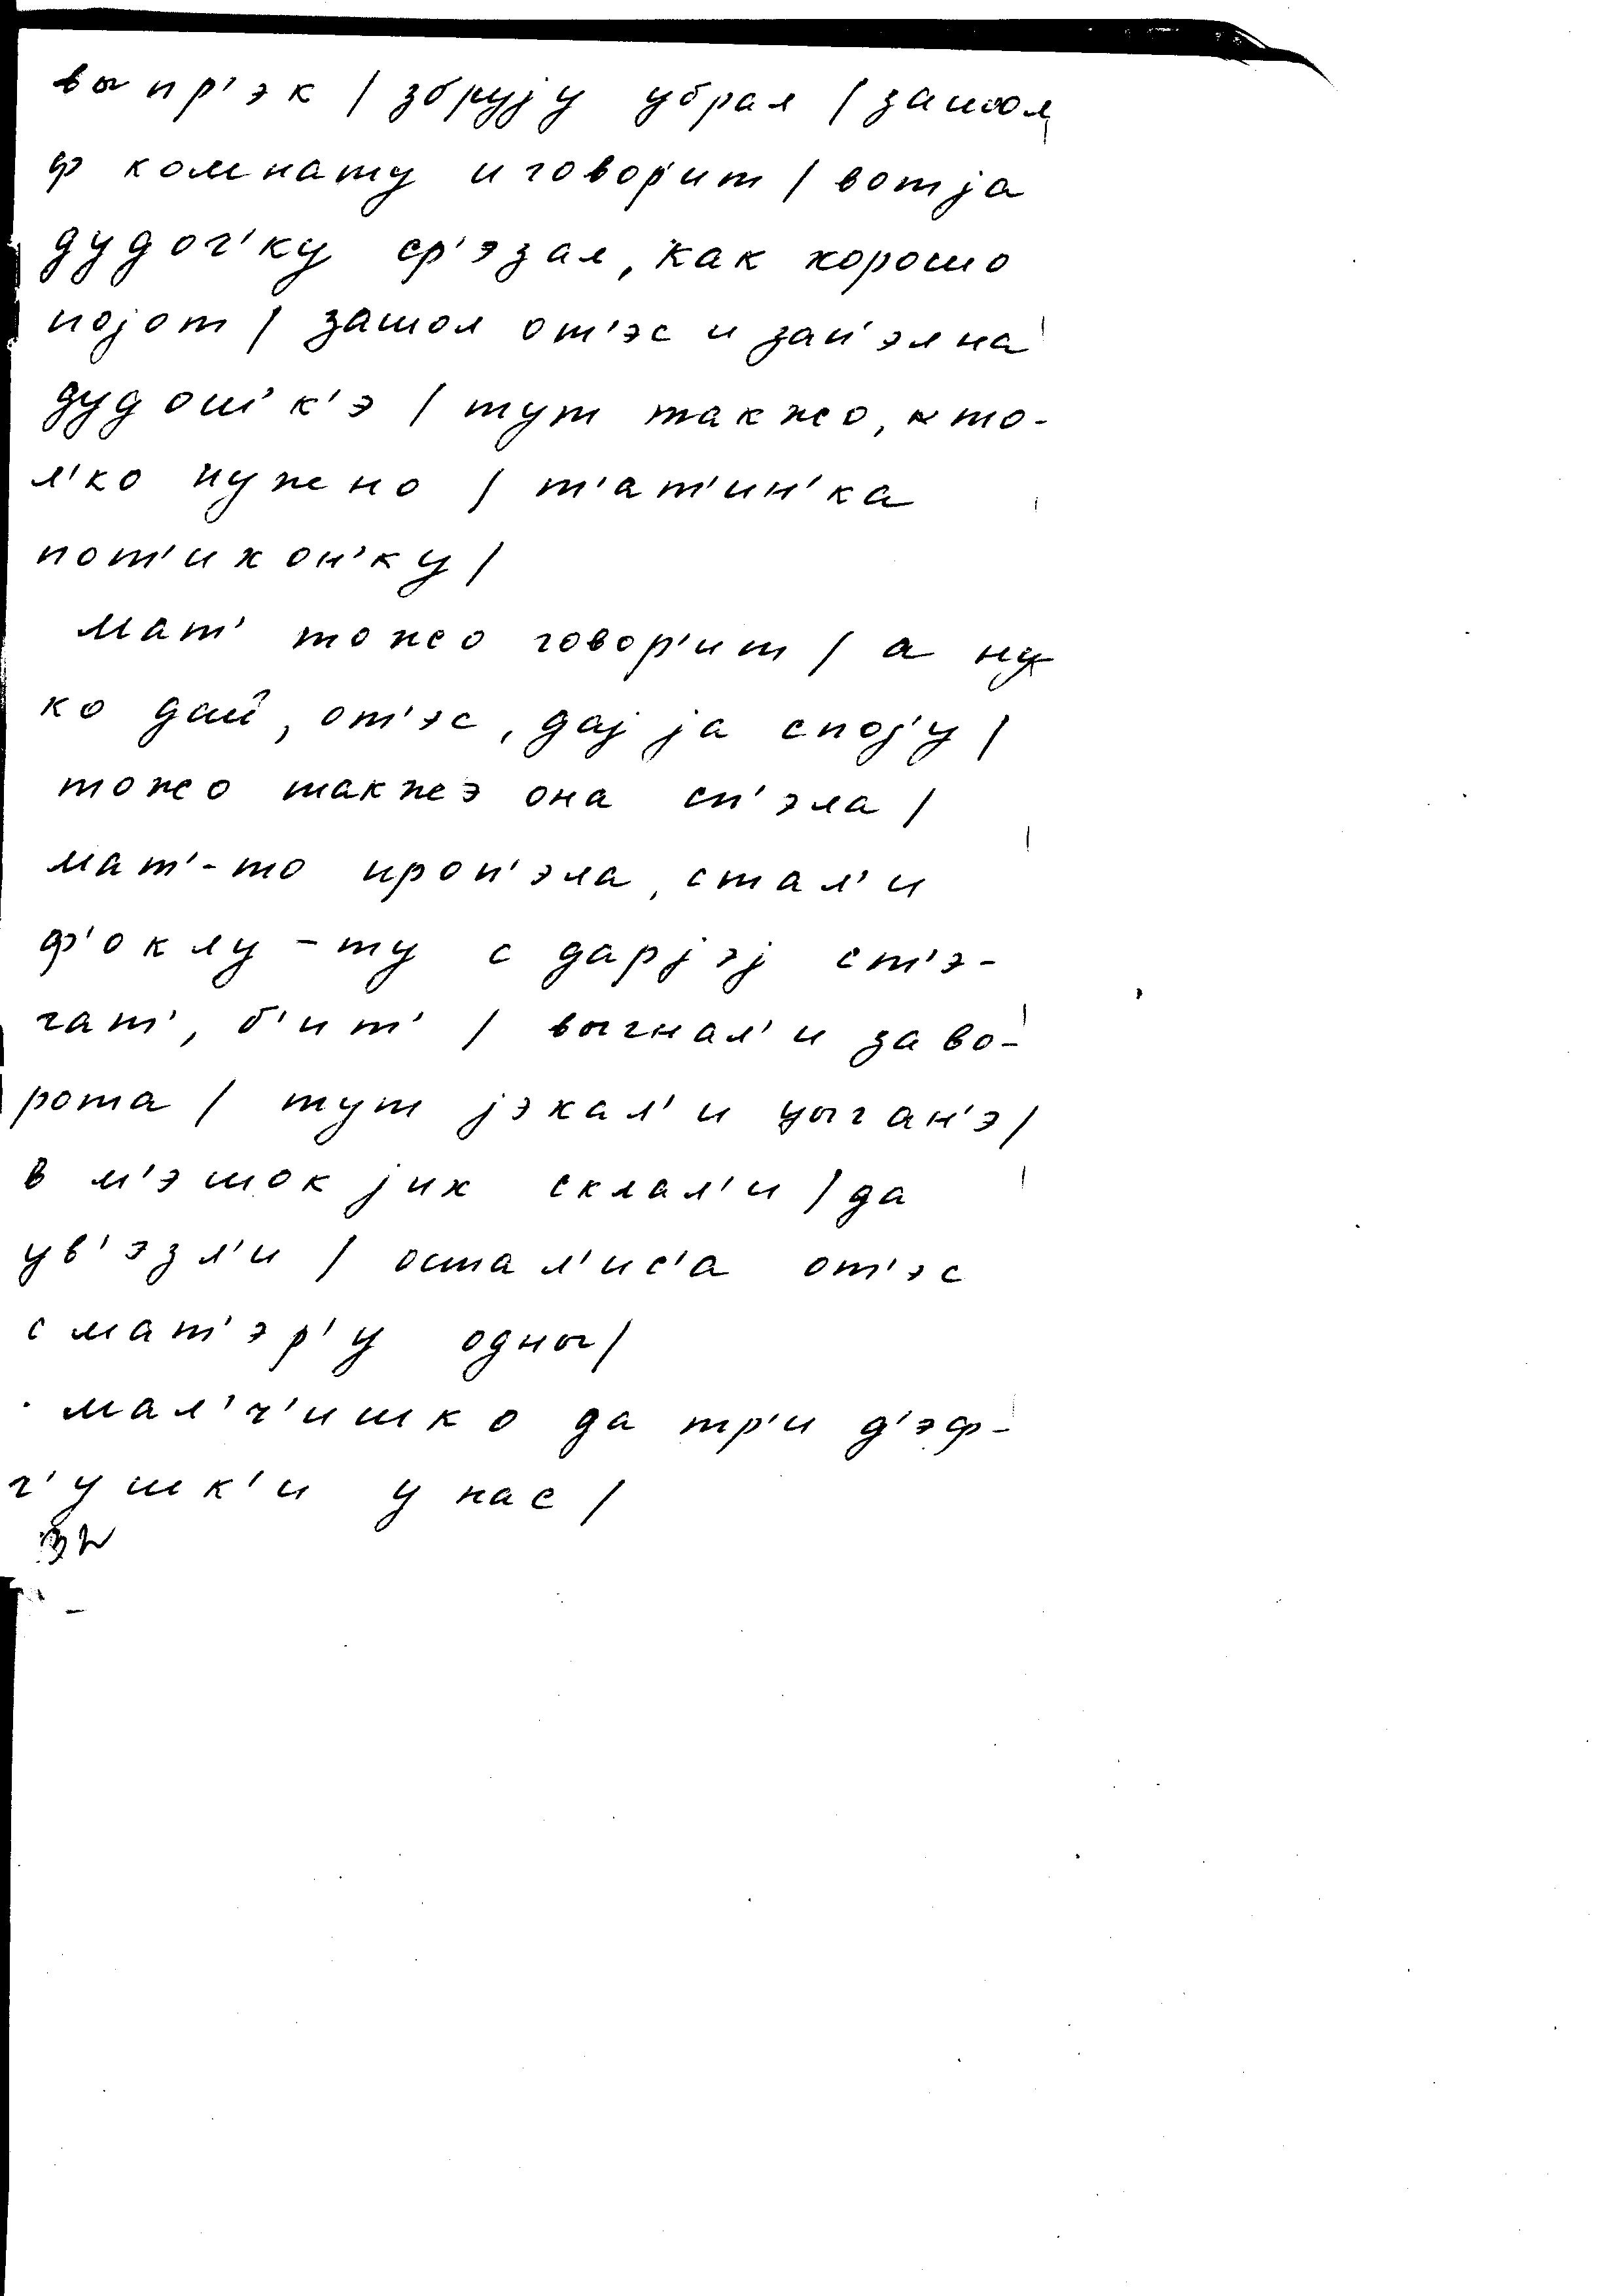 выпр'эк / збруjу убрал / зашол
ф комнату и говор'ит / вот jа
дудоч'ку ср'эзал, как хорошо
поjот / зашол от'эс и зап'эл на
дудош'к'э / тут такжо, и то-
л'ко нужно / т'ат'ин'ка
пот'ихон'ку /
мат' тожо говор'ит / а ну-
ко дай, от'эс, даj jа споj'у /
тожо такжэ она сп'эла /
мат'-то проп'эла, стал'и
ф'оклу-ту с дарjэj ст'э-
гат', б'ит' / выгнал'и за во-
рота / тут jэхал'и цыган'э /
в м'эшок jих склал'и / да
ув'эзл'и / остал'ис'а от'эс
с мат'эр'у одны /
мал'ч'ишко да тр'и д'эф-
ч'ушк'и у нас /